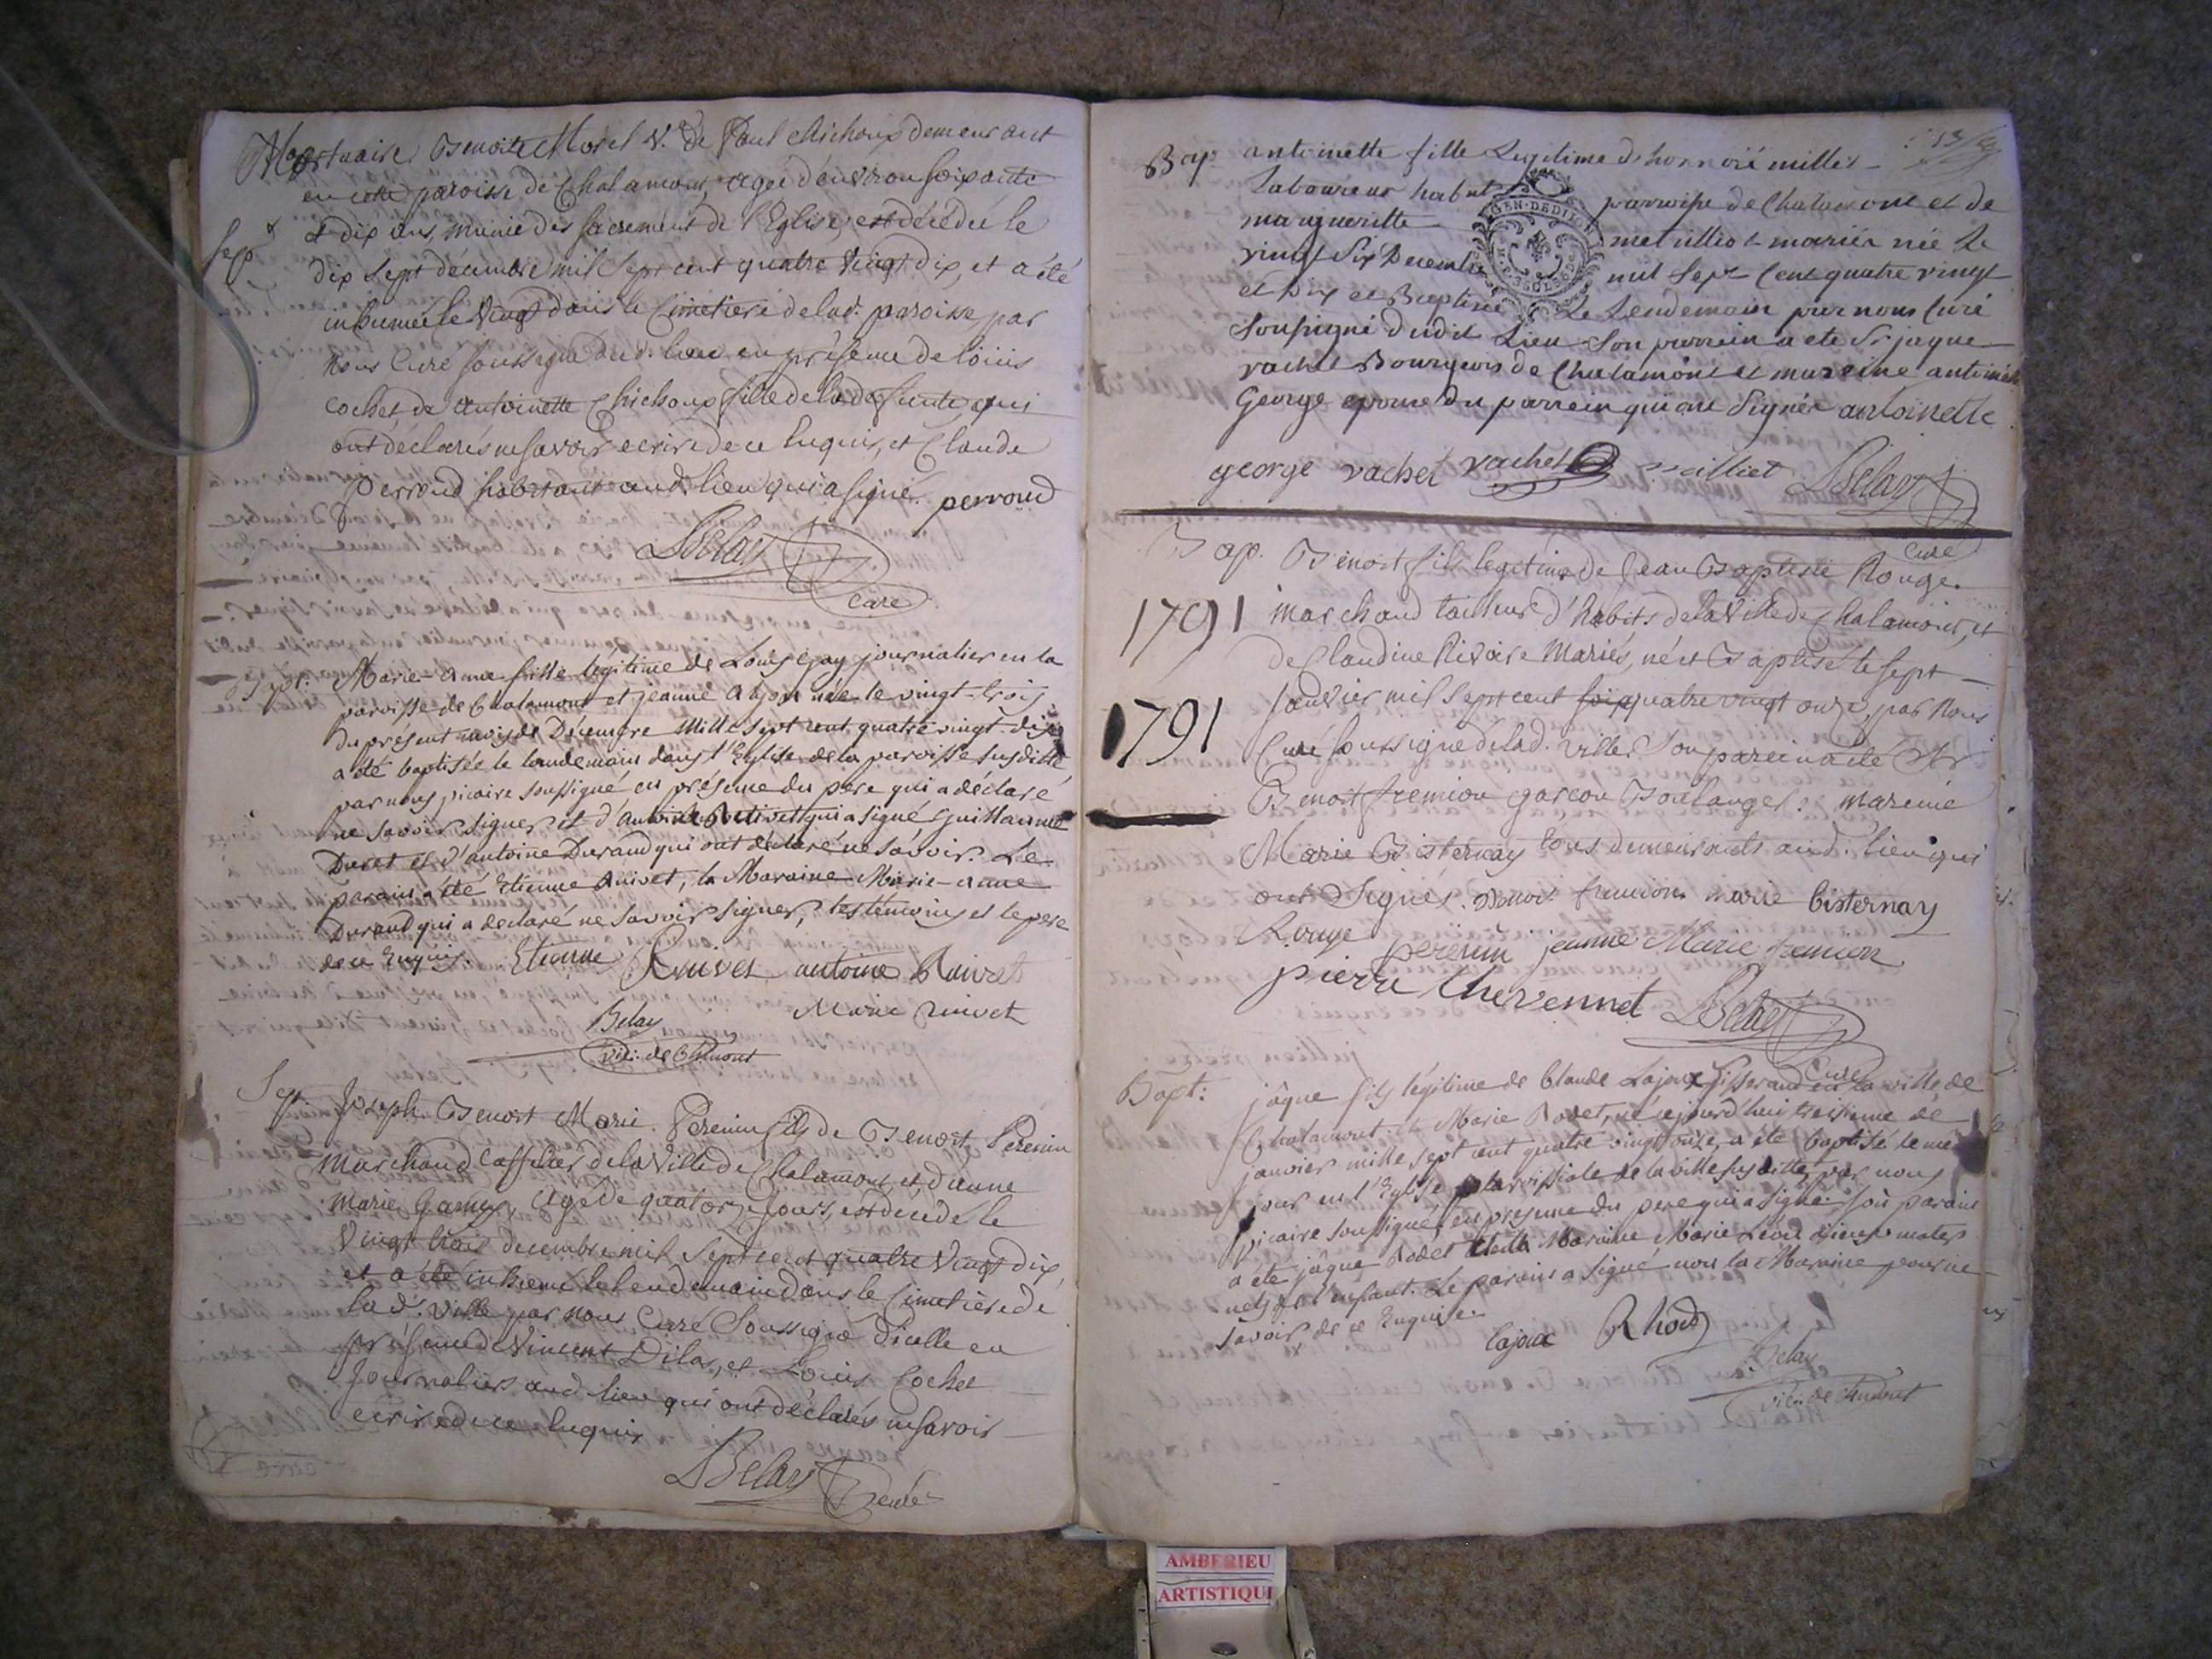 Mortuaire Benoite Morel V.e de Paul Chichoux demeurant
en cette paroisse de Chalamont, agée d'environ soixante
Sep.
& dix ans, munie des sacrements de l'Eglise, est décédée le
dix sept décembre mil sept cent quatre vingt dix, et a été
inhumée le vingt dans le Cimetiere de lad. paroisse par
nous Curé soussigné dud. lieu en présence de loüis
cochet de antoinette Chichoux fille de la defunte, qui
ont déclarés ne savoir ecrire de ce Enquis, et Claude
perroud habitant aud. lieu qui a signé. perroud
LBelay
curé
Bapt: Marie-anne fille legitime de Louis Gay journalier en la
paroisse de Chalamont et jeanne née le vingt-trois
du present mois de Décembre Mille sept cent quatre vingt-dix
a été baptisée le landemain dans l'Eglise de la paroisse susditte,
par nous vicaire soussigné en présence du pere qui a déclaré
ne savoir signer et d'antoine qui a signé guillaume
Duret et d'antoine Durand qui ont déclaré ne sàvoir. Le
parain a été Etienne Ruivet, la Maraine Marie-anne
Durand qui a declaré ne savoir signer, les témoins et le pere
de ce Enquis. Etienne Ruivet antoine Ruivet
Marie Ruivet
Belay
vic: de Chmont
Sep. Joseph Benoit Marie Perenin fils de Benoit Perenin
marchand de la Ville de Chalamont et d'anne
Marie agé de quatorze jours, est décédé le
Vingt trois decembre mil sept cent quatre vingt dix,
et a été inhumé le lendemain dans le Cimetière de
lad. ville par nous Curé Soussigné d'icelle en
présence de Vincent Dilas, et Loüis Cochet
Journaliers aud. lieu qui ont déclarés ne savoir
ecrire de ce Enquis
LBelay
curé
Bap: antoinette fille Legitime d'honnoré milliet
Laboureur habit parroisse de Chalamont et de
margueritte metrilliot mariés née Le
vingt Six Decembre mil Sept Cent quatre vingt
et Dix et Baptisée Le Lendemain par nous Curé
Soussigné dudit Lieu Son parrein a eté Sr jaque
vachet Bourgeois de Chalamont et mareine antoinette
George epouse du parrein qui ont Signés antoinette
george vachet vachet milliet LBelay
curé
Bap. Benoit fils legitime de Jean Baptiste Rouge
1791 marchand tailleur d'habits de la ville de Chalamont, et
de Claudine Rivoire Mariés, né et Baptisé le sept
1791 Janvier mil sept cent soix quatre vingt onze, par Nous
Curé soussigné de lad. ville. Son parein a été Sr
Benoit fremion garçon Boulanger: mareine
Marie Bisternay tous demeurants aud. lieu qui
ont Signés. Benoit fremion marie bisternay
Rouge perenin jeanne Marie fremion
pierre thevennet LBelay
Curé
Bapt: jâque fils légitime de Claude Lajoux Tisserand en la ville de
Chalamont & Marie Rodet, né aujourd'hui treisieme de
janvier mille sept cent quatre vingt onze, a été baptisé le même
jour en l'Eglise parroissiale de la ville susditte, par nous
vicaire soussigné, en presence du pere qui a signé. son parain
a eté jâque Rodet et la Maraine Marie ayeux mater
nels de l'enfant. Le parain a signé non la Maraine pour ne
savoir de ce Enquise.
lajoux Rhodet
Belay
vic: de Chmont
AMBERIEU
ARTISTIQU